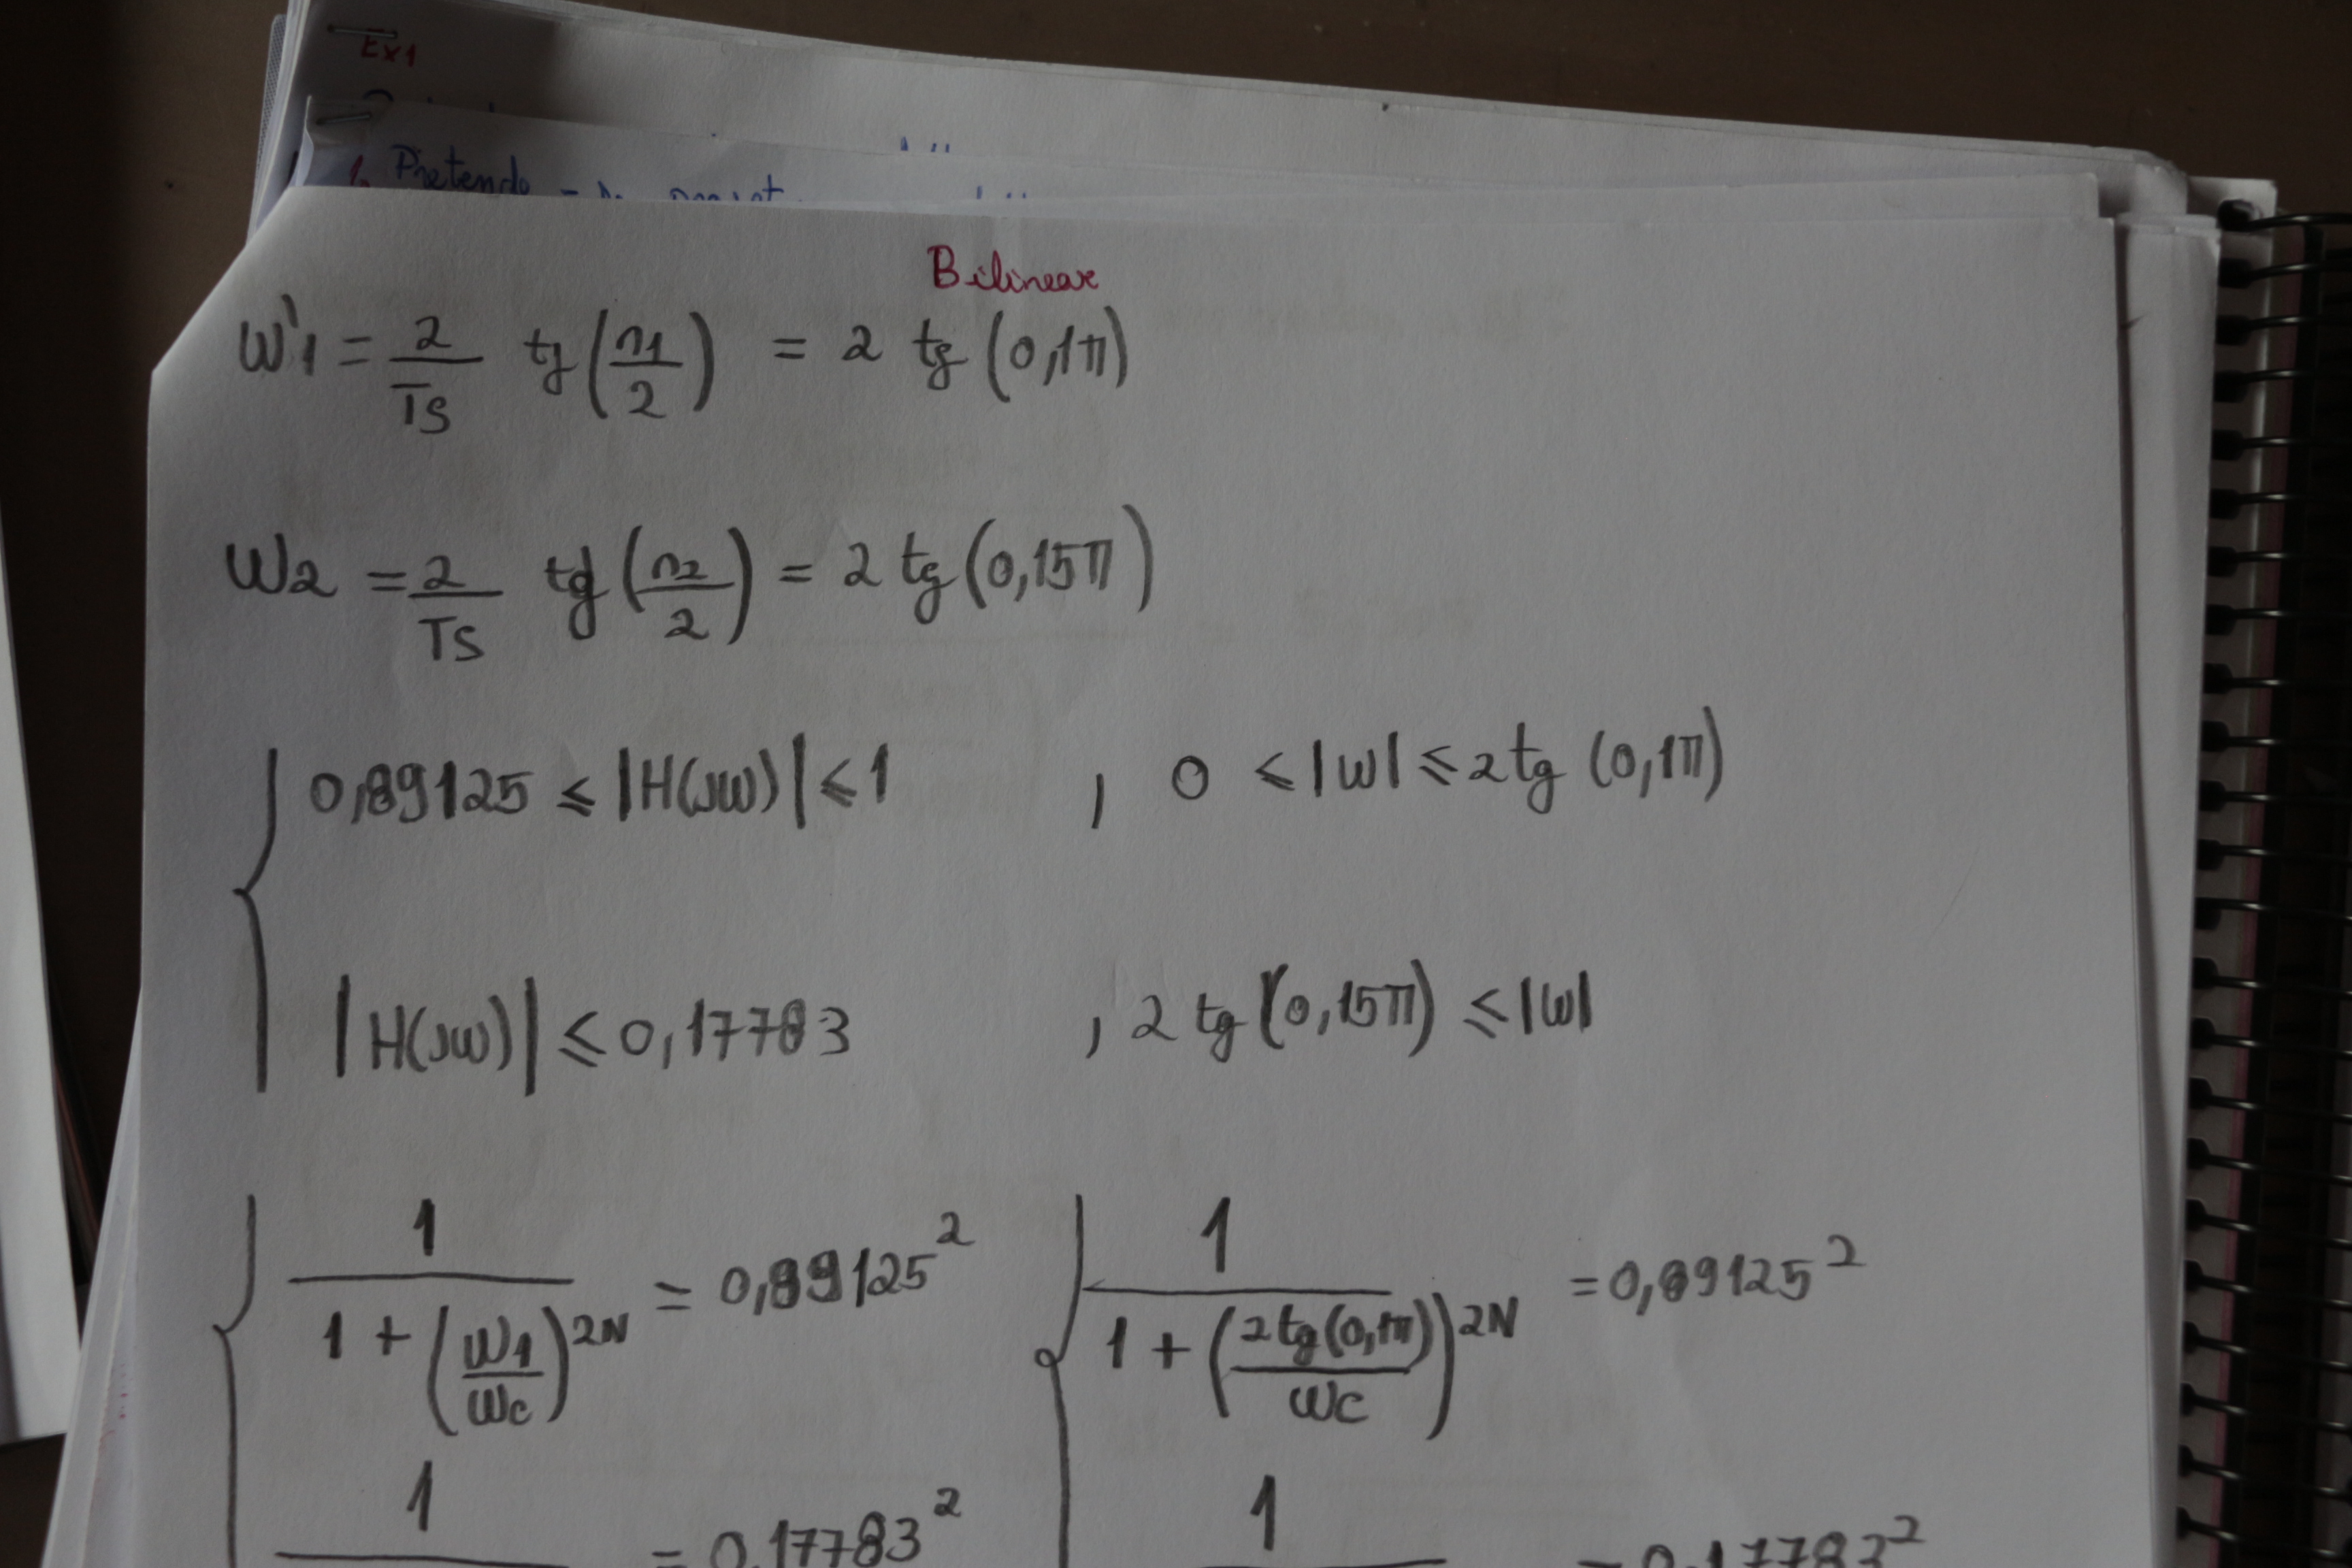 Ex1
1. Pretendo
Bilinear
W'1 = 2/Ts tg(n1/2) = 2 tg(0,1π)
W2 = 2/Ts tg(n2/2) = 2 tg(0,15π)
{ 0,89125 ≤ |H(jw)| ≤ 1 , 0 ≤ |w| ≤ 2 tg (0,1π)
|H(jw)| ≤ 0,17783 , 2 tg(0,15π) ≤ |w|
{ 1/(1 + (W1/Wc)^2N) = 0,89125² { 1/(1 + (2tg(0,1π)/Wc)^2N) = 0,89125²
1 = 0,17783² 1 = 0,17783²